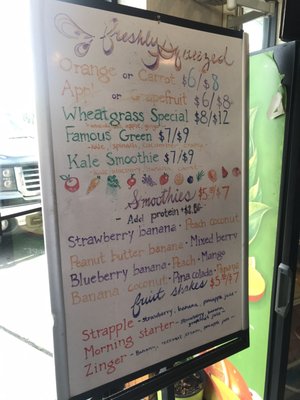 freshly Squeezed
Orange or Carrot $6/$8
Apple or Grapefruit $6/$8
Wheatgrass Special $8/$12
Famous Green $7/$9
Kale Smoothie $7/$9
Smoothies $5.50/$7
- Add protein +$1.50
Strawberry banana - Peach coconut
Peanut butter banana - Mixed berry
Blueberry banana - Peach - Mango
Banana coconut - Pina colada - Papaya
fruit shakes $5.50/$7
Strapple - strawberry, banana, pineapple juice
Morning starter - strawberry, banana,
Zinger - Banana,